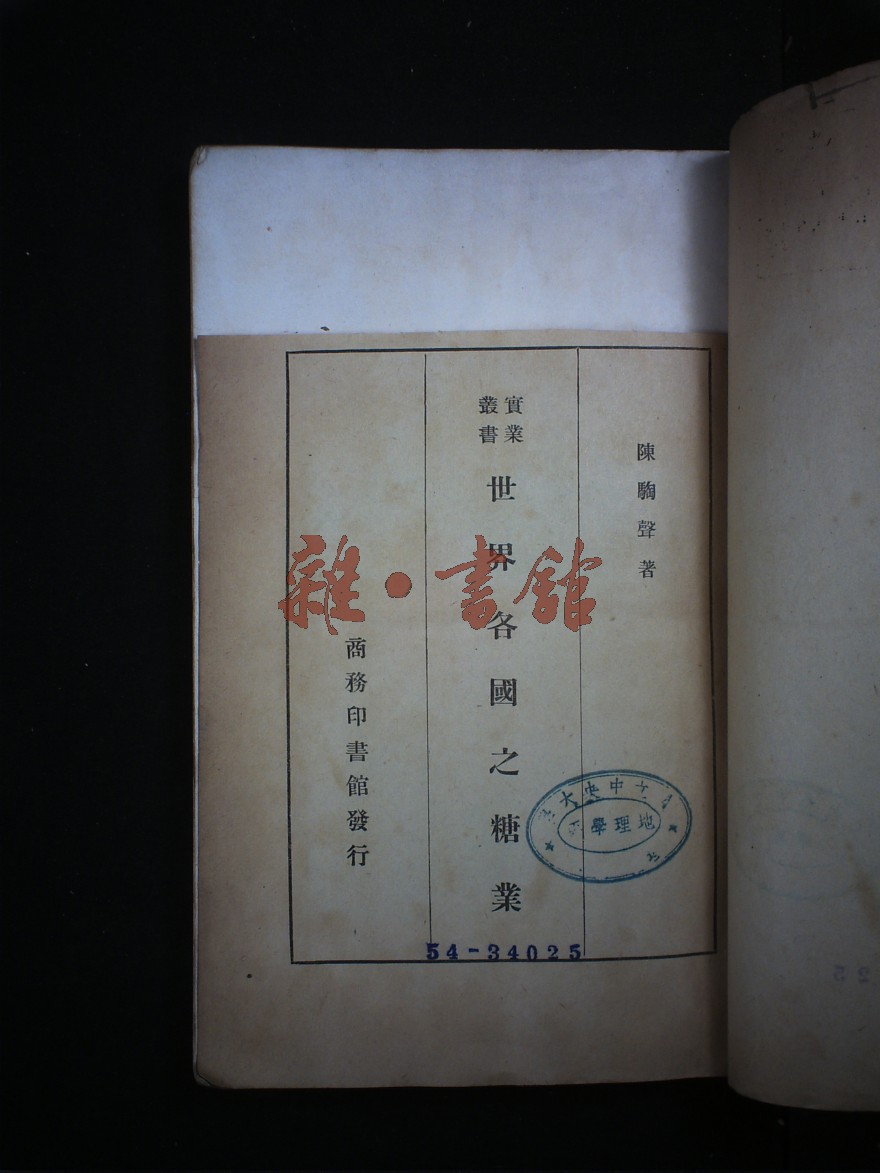 陳騊聲著
實業
叢書
世界各國之糖業
商務印書館發行
雜·書館
中央大
地理學
54-34025